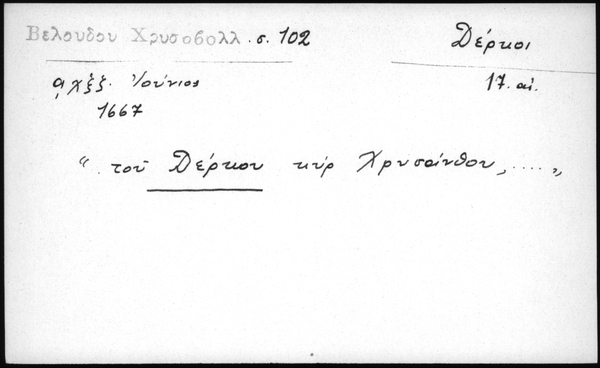 Βελουδου Χρυσοβολλ. σ. 102
Δέρκοι
͵αχξζ Ἰούνιος
17. αἰ.
1667
"τοῦ Δέρκου κύρ Χρυσάνθου, .... "